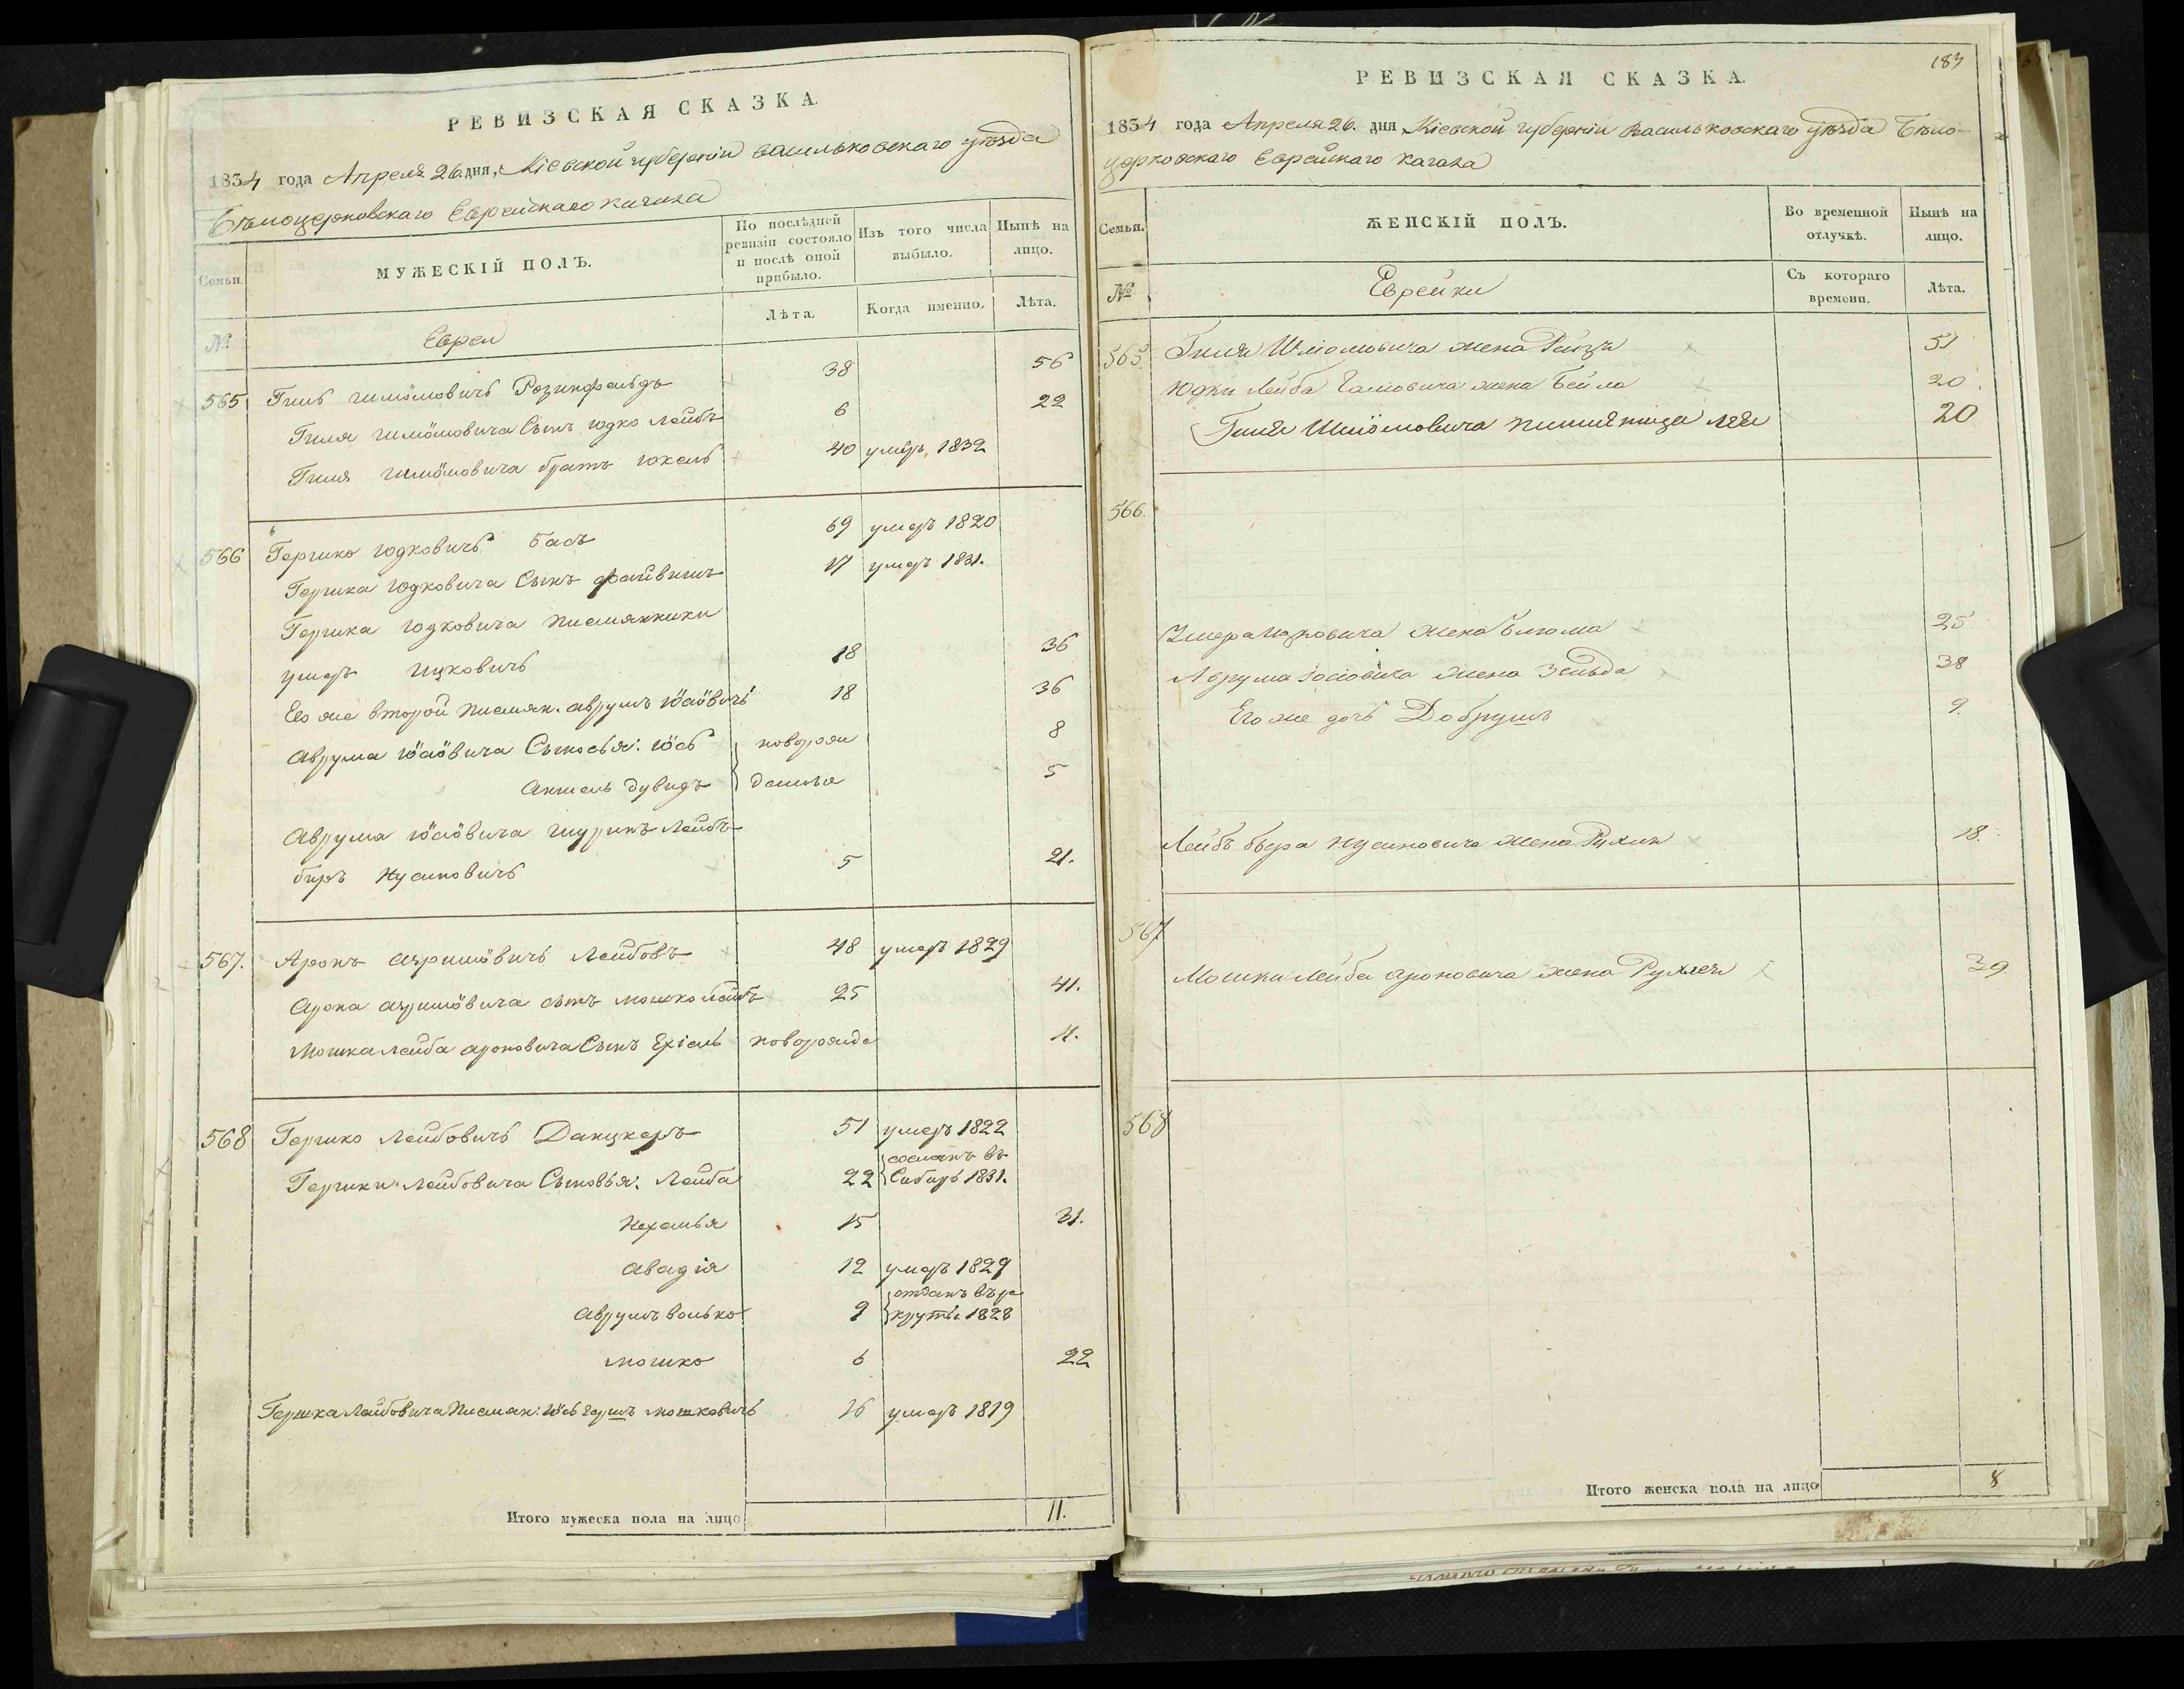 РЕВИЗСКАЯ СКАЗКА.
1834 года Апреля 26 дня, Кіевской губерніи васильковскаго уѣзда
Бѣлоцерковскаго Еврейскаго кагала
Семьи.
МУЖЕСКІЙ ПОЛЪ.
По послѣдней ревизіи состояло и послѣ оной прибыло.
Изъ того числа выбыло.
Нынѣ на лицо.
№
Евреи
Лѣта.
Когда именно.
Лѣта.
565 Гиль Шлiомовичъ Розинфельдъ 38 56
Гиля Шлiомовича Сынъ Юдко Лейбъ 6 22
Гиля Шлiомовича братъ Юкель 40 умеръ 1832
566 Гершко Юдковичъ Басъ 69 умеръ 1820
Гершка Юдковича Сынъ файвишъ 17 умеръ 1831.
Гершка Юдковича племянники
умеръ Ицковичъ 18 36
Его же второй племян. Аврумъ Іосiовичъ 18 36
Аврума Іосiовича Сыновья: Іось новорож 8
Аншель дувидъ денные 5
Аврума Іосiовича шуринъ Лейбъ
беръ Нусиновичъ 5 21.
567. Аронъ Лейбовъ 48 умеръ 1829
Арона сынъ мошко Лейбъ 25 41.
Мошка Лейба ароновича Сынъ Ехіель новорожде 11.
568 Гершко Лейбовичъ Данцкеръ 51 умеръ 1822
Гершки Лейбовича Сыновья: Лейба 22 сосланъ въ Сибирь 1831.
Нехемья 15 31.
Авадія 12 умеръ 1829
Аврумъ волько 9 отданъ въ ре круты 1828
мошко 6 22
Гершка Лейбовича племян: Іось Гершъ мошковичъ 16 умеръ 1819
Итого мужеска пола на лицо 11.
183
РЕВИЗСКАЯ СКАЗКА.
1834 года Апреля 26. дня, Кіевской губерніи Васильковскаго уѣзда Бѣло-
церковскаго Еврейскаго кагала
Семьи.
ЖЕНСКІЙ ПОЛЪ.
Во временной отлучкѣ.
Нынѣ на лицо.
№
Еврейки
Съ котораго времени.
Лѣта.
565. Гиля Шліомовича жена Рейзя 51
Юдки Лейба Гилiовича жена Бейла 20.
Гиля Шліомовича племянница Лея 20
566.
Ицковича жена Блюма 25
Аврума Іосiовича жена Зельда 38
Его же дочь Добрушъ 9.
Лейбъ Бера Нусиновича жена Рухля 18.
567
Мошки Лейба Ароновича жена Рухлея 39.
568
Итого женска пола на лицо 8